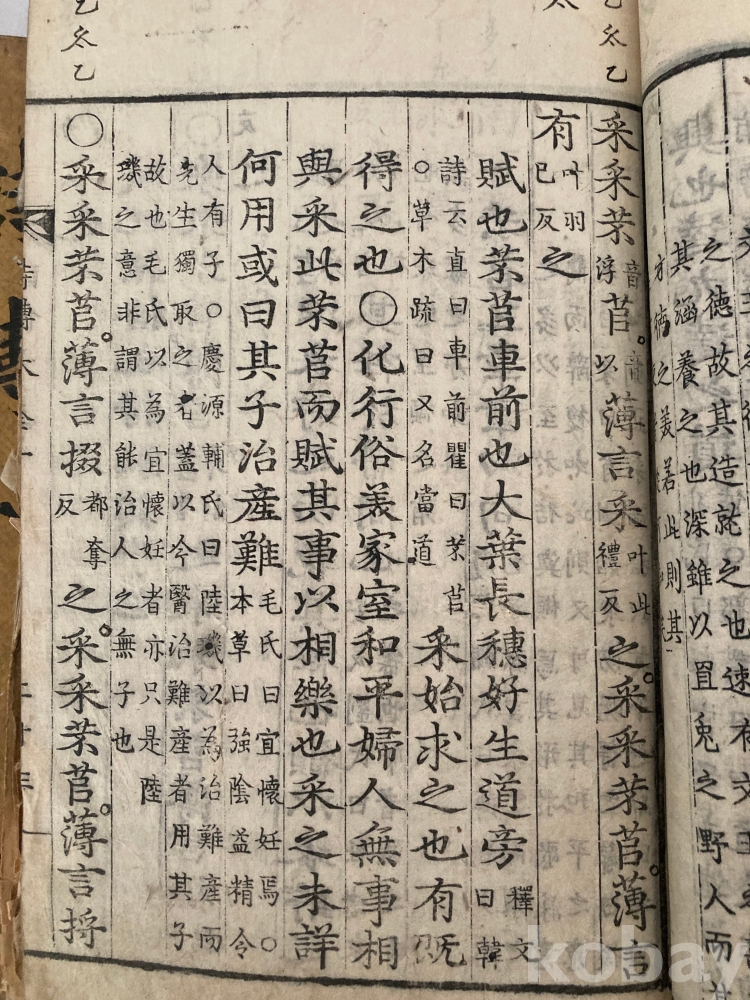 之德故其造就之也
其涵養之也深雖以罝兔之野人而其
厼乙
采采芣音浮苢音以薄言采叶此禮反之采采芣苢薄言
有叶羽已反之
賦也芣苢車前也大葉長穗好生道旁釋文曰韓
詩云直曰車前瞿曰芣苢○草木疏曰又名當道采始求之也有既
得之也○化行俗美家室和平婦人無事相
與采此芣苢而賦其事以相樂也采之未詳
何用或曰其子治産難毛氏曰宜懷妊焉○本草曰強陰益精令
人有子○慶源輔氏曰陸璣以為治難産而
先生獨取之者蓋以今醫治難産者用其子
故也毛氏以為宜懷妊者亦只是陸
璣之意非謂其能治人之無子也
厼乙
○采采芣苢薄言掇都奪反之采采芣苢薄言捋
詩傳大全一
kobay